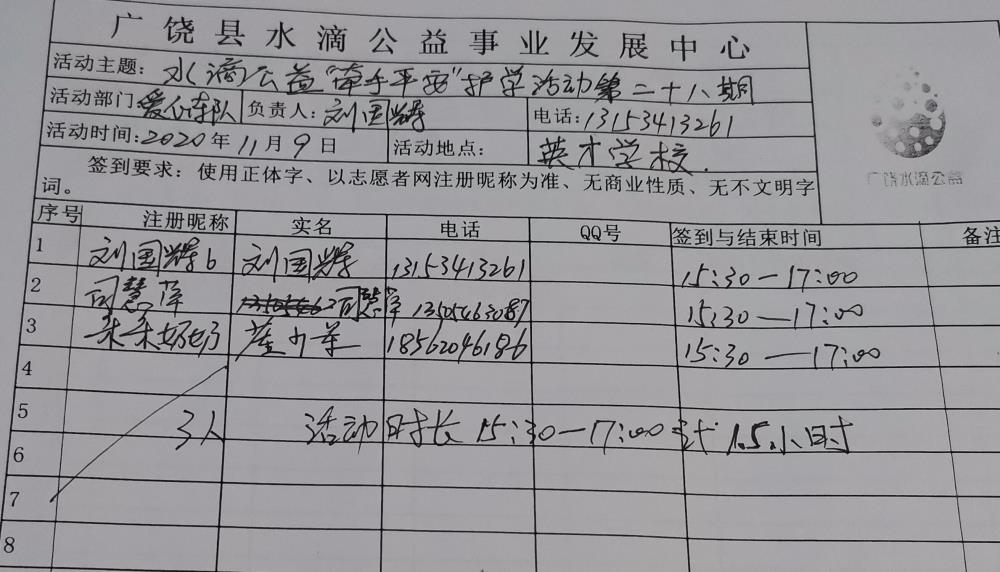 广饶县水滴公益事业发展中心
活动主题：水滴公益“牵手平安”护学活动第二十八期
活动部门：爱心车队 负责人：刘国辉 电话：13153413261
活动时间：2020年11月9日 活动地点：英才学校.
签到要求：使用正体字、以志愿者网注册昵称为准、无商业性质、无不文明字
词。
广饶水滴公益
序号 注册昵称 实名 电话 QQ号 签到与结束时间 备注
1 刘国辉b 刘国辉 13153413261 15:30—17:00
2 司慧萍 司慧萍 13505463087 15:30—17:00
3 朵朵奶奶 18562046186 15:30—17:00
4
5 3人 活动时长 15:30—17:00 计 1.5小时
6
7
8